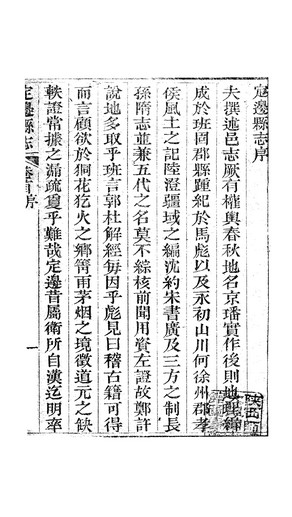 定邊縣志序
夫撰述邑志厥有權輿春秋地名京璠實作後則地理編
成於班固郡縣踵紀於馬彪以及永初山川何徐州郡孝
侯風土之記陸澄疆域之編沈約宋書廣及三方之制長
孫隋志並兼五代之名莫不綜核前聞用資左證故鄭許
說地多取乎班言郭杜解經每因乎彪見曰稽古籍可得
而言顧欲於桐花犵火之鄉箐雨茅烟之境徵道元之缺
軼證常據之漏疏戛乎難哉定邊昔屬衛所自漢迄明率
定邊縣志
序
一